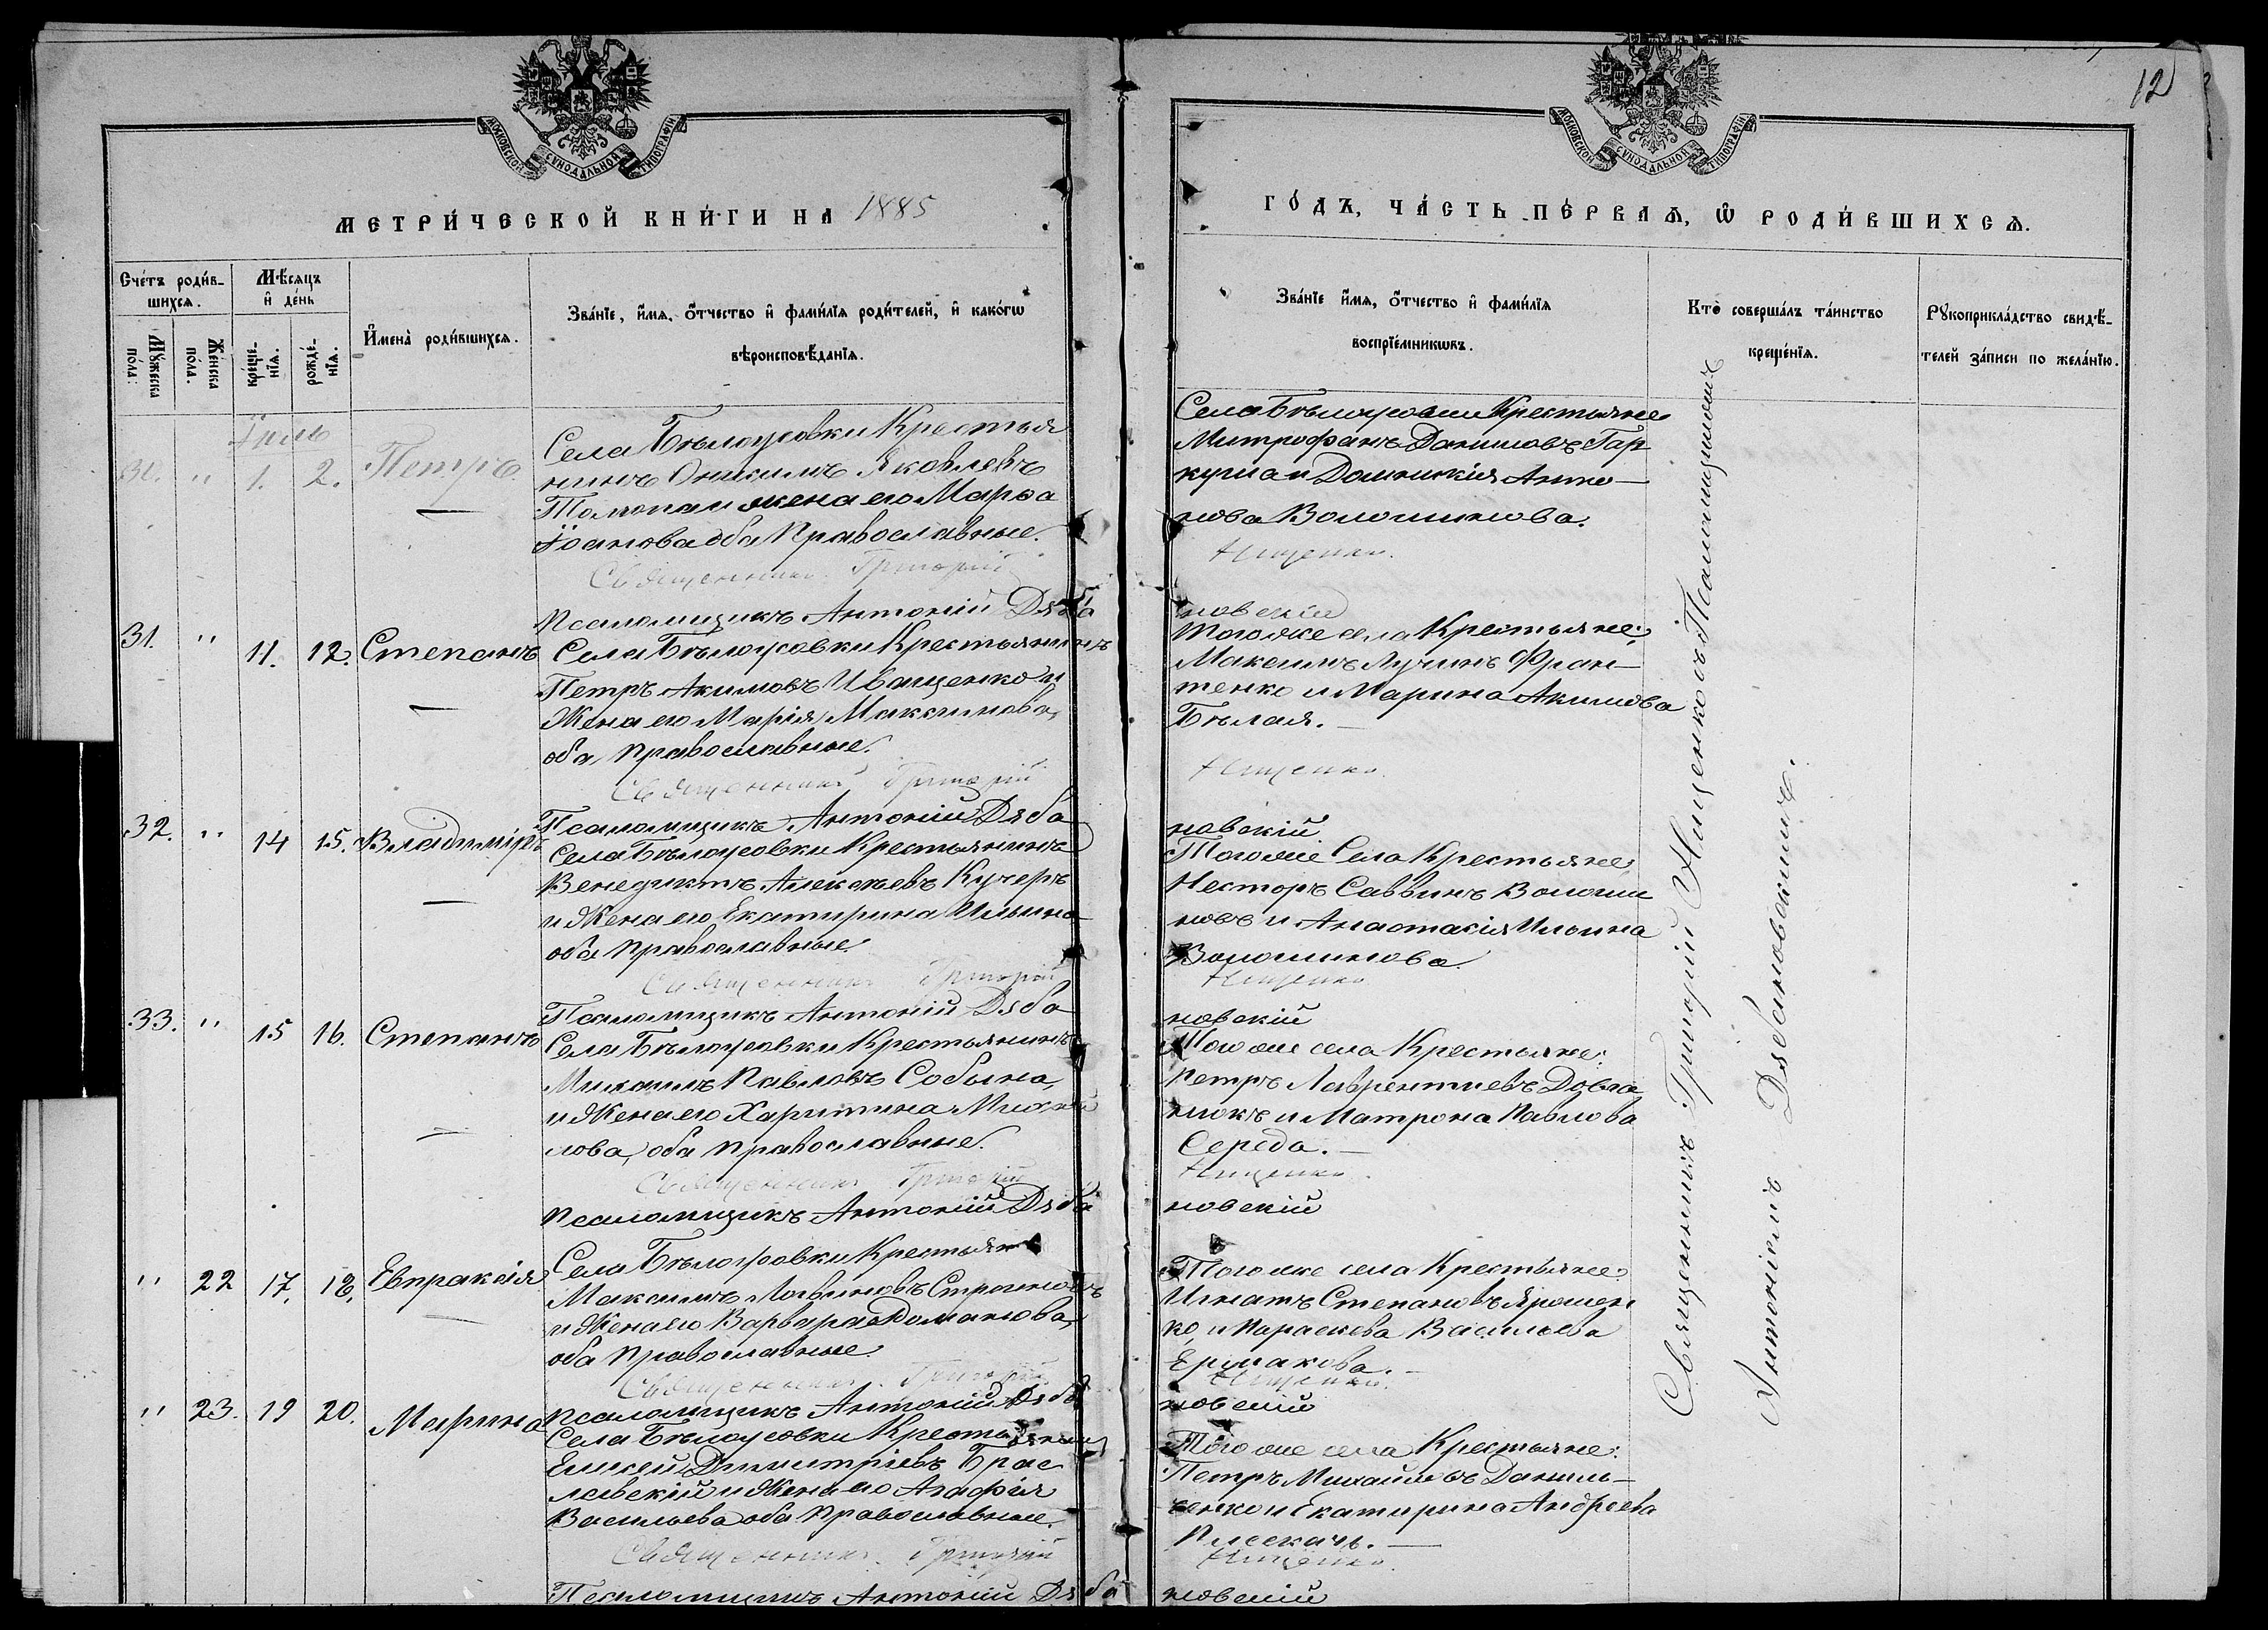 12
МОСКОВСКОЙ СѴНОДАЛЬНОЙ ТИПОГРАФІИ
МОСКОВСКОЙ СѴНОДАЛЬНОЙ ТИПОГРАФІИ
МЕТРИ́ЧЕСКОЙ КНИ́ГИ НА 1885
ГО́ДЪ, ЧА́СТЬ ПЕ́РВАѦ, Ѽ РОДИ́ВШИХСѦ.
Сче́тъ роди́в-
шихсѧ.
Мꙋ́жеска
по́ла.
Же́нска
по́ла.
Мѣ́сѧцъ
и҆ де́нь
креще́-
нїѧ.
рожде́-
нїѧ.
И҆мена̀ роди́вшихсѧ.
Зва́нїе, и҆́мѧ, ѻ҆́тчество и҆ фамѝлїѧ роди́телей, и҆ како́гѡ
вѣроисповѣ́данїѧ.
Зва́нїе и҆́мѧ, ѻ҆́тчество и҆ фамѝлїѧ
воспрїе́мникѡвъ.
Кто̀ соверша́лъ та́инство
креще́нїѧ.
Рꙋкоприкла́дство свидѣ́-
телей за́писи по жела́нїю.
Іюль
30. " 1. 2. Петръ
Села Бѣлоусовки Крестья
нинъ Онисимъ Яковлевъ
и жена его Марѳа
Іоанова оба Православные.
Священникъ Григорій
Псаломщикъ Антоній Дяба
Села Бѣлоусовки Крестьяне
Митрофанъ Даниловъ Гар
куша и Домникія Анто-
нова Волошинова.
Нищенко.
новскій
31. " 11. 12. Степанъ
Села Бѣлоусовки Крестьянинъ
Петръ Акимовъ Иващенко и
Жена его Марія Максимова,
оба Православные.
Священникъ Григорій
Псаломщикъ Антоній Дяба
Того же села Крестьяне:
Максимъ Лучинъ Фран-
тенко и Марина Акимова
Бѣлая.
Нищенко.
новскій
32. " 14 15. Владиміръ
Села Бѣлоусовки Крестьянинъ
Венедиктъ Алексѣевъ Кучеръ
и Жена его Екатирина Ильина
оба Православные.
Священникъ Григорій
Псаломщикъ Антоній Дяба
Того же Села Крестьяне
Несторъ Саввинъ Волоши
новъ и Анастасія Ильина
Волошинова.
Нищенко
новскій
33. " 15 16. Степанъ
Села Бѣлоусовки Крестьянинъ
Михаилъ Павловъ Собына,
и Жена его Харитина Михай
лова, оба Православные.
Священникъ Григорій
Псаломщикъ Антоній Дяба
Того же села Крестьяне:
Петръ Лаврентиевъ Довга
нюкъ и Матрона Павлова
Середа.
Нищенко.
новскій
" 22 17. 18. Евпраксія
Села Бѣлоусовки Крестьян
Максимъ Логвиновъ
и Жена его Варвара Романова,
оба Православные.
Священникъ Григорій
Псаломщикъ Антоній Дяба
Того же села Крестьяне:
Игнатъ Степановъ Ярошен
ко, и Параскева Васильева
Ермакова.
Нищенко.
новскій
" 23. 19 20. Марина
Села Бѣлоусовки Крестьянинъ
Елисей Димитріевъ Брас
лавскій и Жена его Агафія
Васильева оба Православные.
Священникъ Григорій
Псаломщикъ Антоній Дяба
Того же села Крестьяне:
Петръ Михайловъ Даниль-
ченко и Екатирина Андреева
Плескачь.
Нищенко.
новскій
Священникъ Григорій Нищенко съ Псаломщикомъ
Антоніемъ Дябановскимъ.